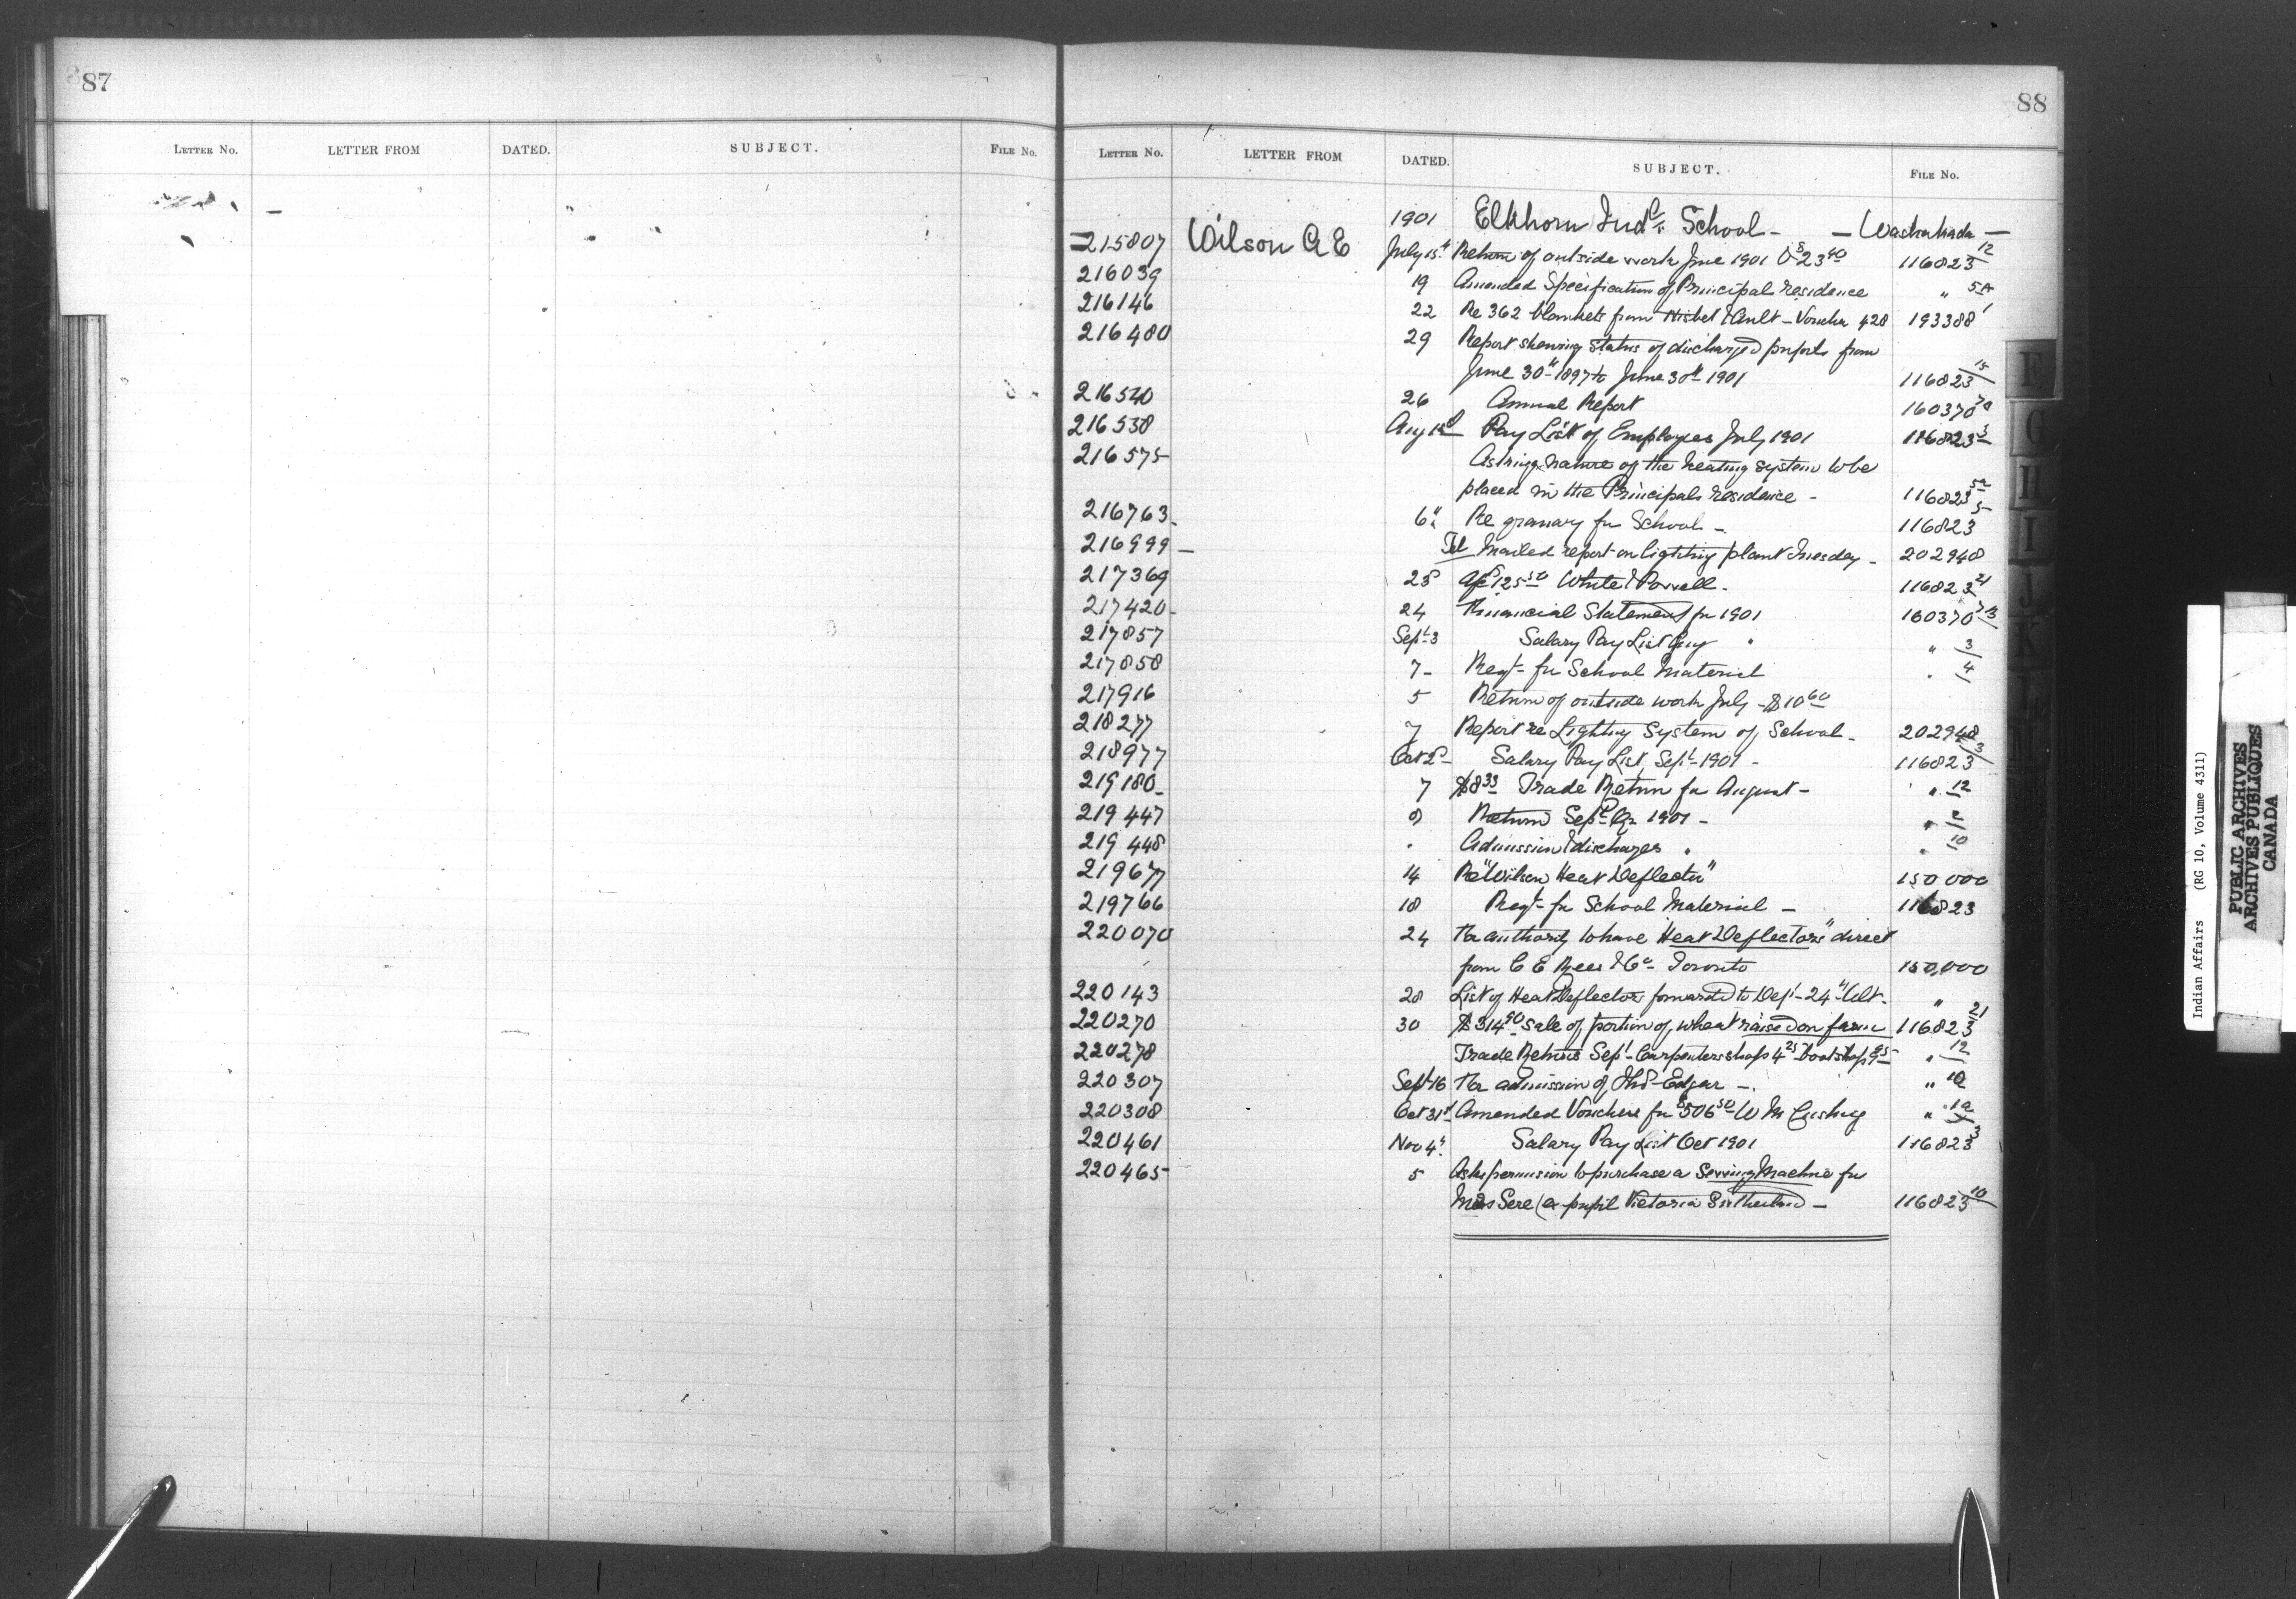 87
LETTER NO. LETTER FROM DATED. SUBJECT. FILE NO.
88
LETTER NO. LETTER FROM DATED. SUBJECT. FILE NO.
1901 Elkhorn Indl. School - — Washakada —
215807 Wilson A E July 15th Return of outside work June 1901 $23 40 116823 12
216039 19 Amended Specification of Principals residence " 5A
216146 22 Re 362 blankets from Nisbet & Ault - Voucher 428 193388 1
216480 29 Report shewing status of discharged pupils from
June 30th 1897 to June 30th 1901 116823 15
216540 26 Annual Report 160370
216538 Aug Pay List of Employees July 1901 116823 3
216575 Asking nature of the heating system to be
placed in the Principals residence - 116823 5a
216763 6" Re granary for School - 116823 5
216999 — Tel Mailed report on lighting plant Tuesday - 202948
217369 23 a/c $125 50 White & Powell - 116823 21
217420 24 Financial Statement for 1901 160370
217857 Sept 3 Salary Pay List Aug " " 3
217858 7 - Reqt - for School Material " 4
217916 5 Return of outside work July - $10 60
218277 7 Report re Lighting System of School - 202948
218977 Oct 2d Salary Pay List Sept - 1901 - 116823 3
219180 7 $8 33 Trade Return for August - " 12
219447 9 Return Sept Qr 1901 - "
219448 " Admission & discharges " " 10
219677 14 Re "Wilson Heat Deflector" 150 000
219766 18 Reqt - for School Material — 116823
220070 24 For authority to have "Heat Deflectors" direct
from C E Rees & Co - Toronto 150,000
220143 28 List of Heat Deflectors forwarded to Dept - 24" Ult - "
220270 30 $314 90 sale of portion of wheat raised on farm 116823 21
220278 Trade Returns Sept - Carpenters shop 4 25 Bootshop " 12
220307 Sept 16 For admission of Thos - Edgar - " 10
220308 Oct 31st Amended Vouchers for $506 50 - W M Cushing "
220461 Nov 4" Salary Pay List Oct 1901 116823 3
220465 5 Asks permission to purchase a Sewing Machine for
Mrs Sere (ex pupil Victoria Sutherland — 116823 10
F
G
H
I
J
K
L
M
Indian Affairs (RG 10, Volume 4311)
PUBLIC ARCHIVES
ARCHIVES PUBLIQUES
CANADA